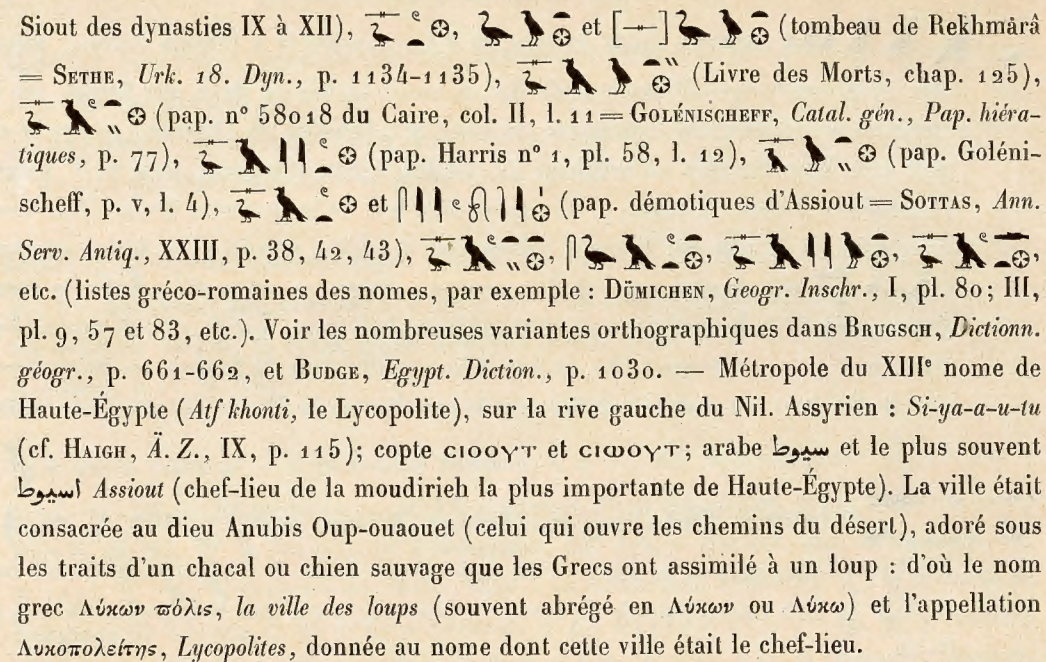 Siout des dynasties IX à XII), , et [—] (tombeau de Rekhmârâ
= SETHE, Urk. 18. Dyn., p. 1134-1135), (Livre des Morts, chap. 125),
(pap. n° 58018 du Caire, col. II, l. 11 = GOLÉNISCHEFF, Catal. gén., Pap. hiéra-
tiques, p. 77), (pap. Harris n° 1, pl. 58, l. 12), (pap. Goléni-
scheff, p. V, l. 4), et (pap. démotiques d'Assiout = SOTTAS, Ann.
Serv. Antiq., XXIII, p. 38, 42, 43), , , ,
etc. (listes gréco-romaines des nomes, par exemple : DÜMICHEN, Geogr. Inschr., I, pl. 80; III,
pl. 9, 57 et 83, etc.). Voir les nombreuses variantes orthographiques dans BRUGSCH, Dictionn.
géogr., p. 661-662, et BUDGE, Egypt. Diction., p. 1030. — Métropole du XIIIe nome de
Haute-Égypte (Atf khonti, le Lycopolite), sur la rive gauche du Nil. Assyrien : Si-ya-a-u-tu
(cf. HAIGH, Ä. Z., IX, p. 115); copte ⲥⲓⲟⲟⲩⲧ et ⲥⲓⲱⲟⲩⲧ; arabe سيوط et le plus souvent
اسيوط Assiout (chef-lieu de la moudirieh la plus importante de Haute-Égypte). La ville était
consacrée au dieu Anubis Oup-ouaouet (celui qui ouvre les chemins du désert), adoré sous
les traits d'un chacal ou chien sauvage que les Grecs ont assimilé à un loup : d'où le nom
grec Λύκων πόλις, la ville des loups (souvent abrégé en Λύκων ou Λύκω) et l'appellation
Λυκοπολείτης, Lycopolites, donnée au nome dont cette ville était le chef-lieu.